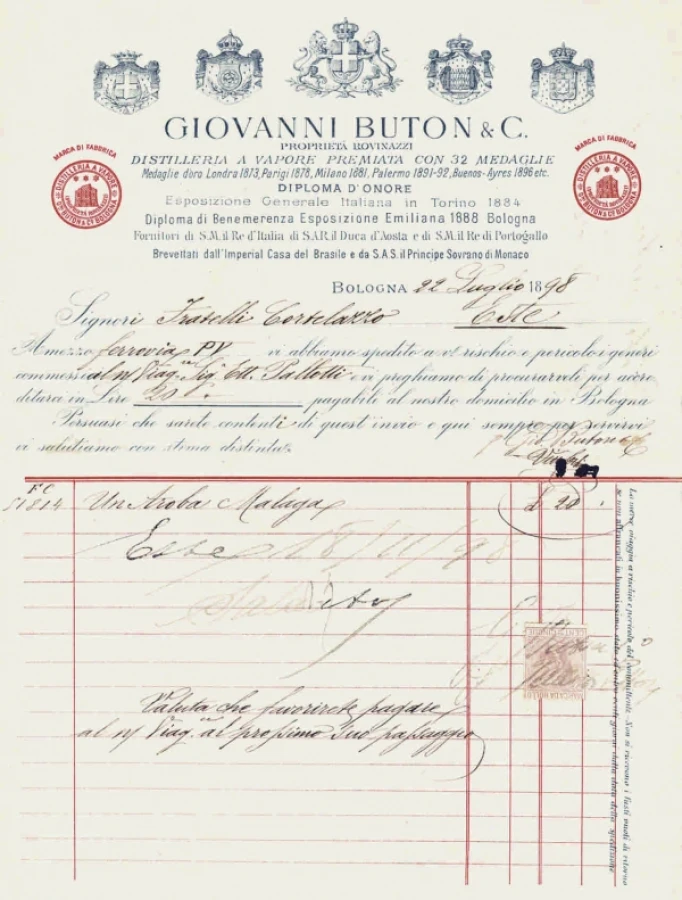 GIOVANNI BUTON & C.
PROPRIETÁ ROVINAZZI
DISTILLERIA A VAPORE PREMIATA CON 32 MEDAGLIE
Medaglie d'oro Londra 1873, Parigi 1878, Milano 1881, Palermo 1891-92, Buenos-Ayres 1896 etc.
DIPLOMA D'ONORE
Esposizione Generale Italiana in Torino 1884
Diploma di Benemerenza Esposizione Emiliana 1888 Bologna
Fornitori di S.M. il Re d'Italia di S.A.R. il Duca d'Aosta e di S.M. il Re di Portogallo
Brevettati dall'Imperial Casa del Brasile e da S.A.S. il Principe Sovrano di Monaco
MARCA DI FABBRICA
DISTILLERIA A VAPORE
GIO. BUTON & C. BOLOGNA
MARCA DI FABBRICA
DISTILLERIA A VAPORE
GIO. BUTON & C. BOLOGNA
BOLOGNA 22 Luglio 1898
Signori Fratelli Cortelazzo Este
A mezzo ferrovia PV vi abbiamo spedito a vº rischio e pericolo i generi
commessi al n/ Viag. Sig. Ett. Pallotti e vi preghiamo di procurarveli per accre
ditarci in Lire 20 pagabile al nostro domicilio in Bologna
Persuasi che sarete contenti di quest'invio e qui sempre per servirvi
vi salutiamo con stima distinta
p. Gio. Buton & C.
FC
51814 Un Aroba Malaga £ 20
Este 18/11/98
Valuta che favorirete pagare
al n/ Viag. al prossimo Suo passaggio
La merce viaggia a rischio e pericolo del committente. Non si ricevono i fusti vuoti di ritorno
se non affrancati, in buonissimo stato ed entro
giorni dalla data della spedizione